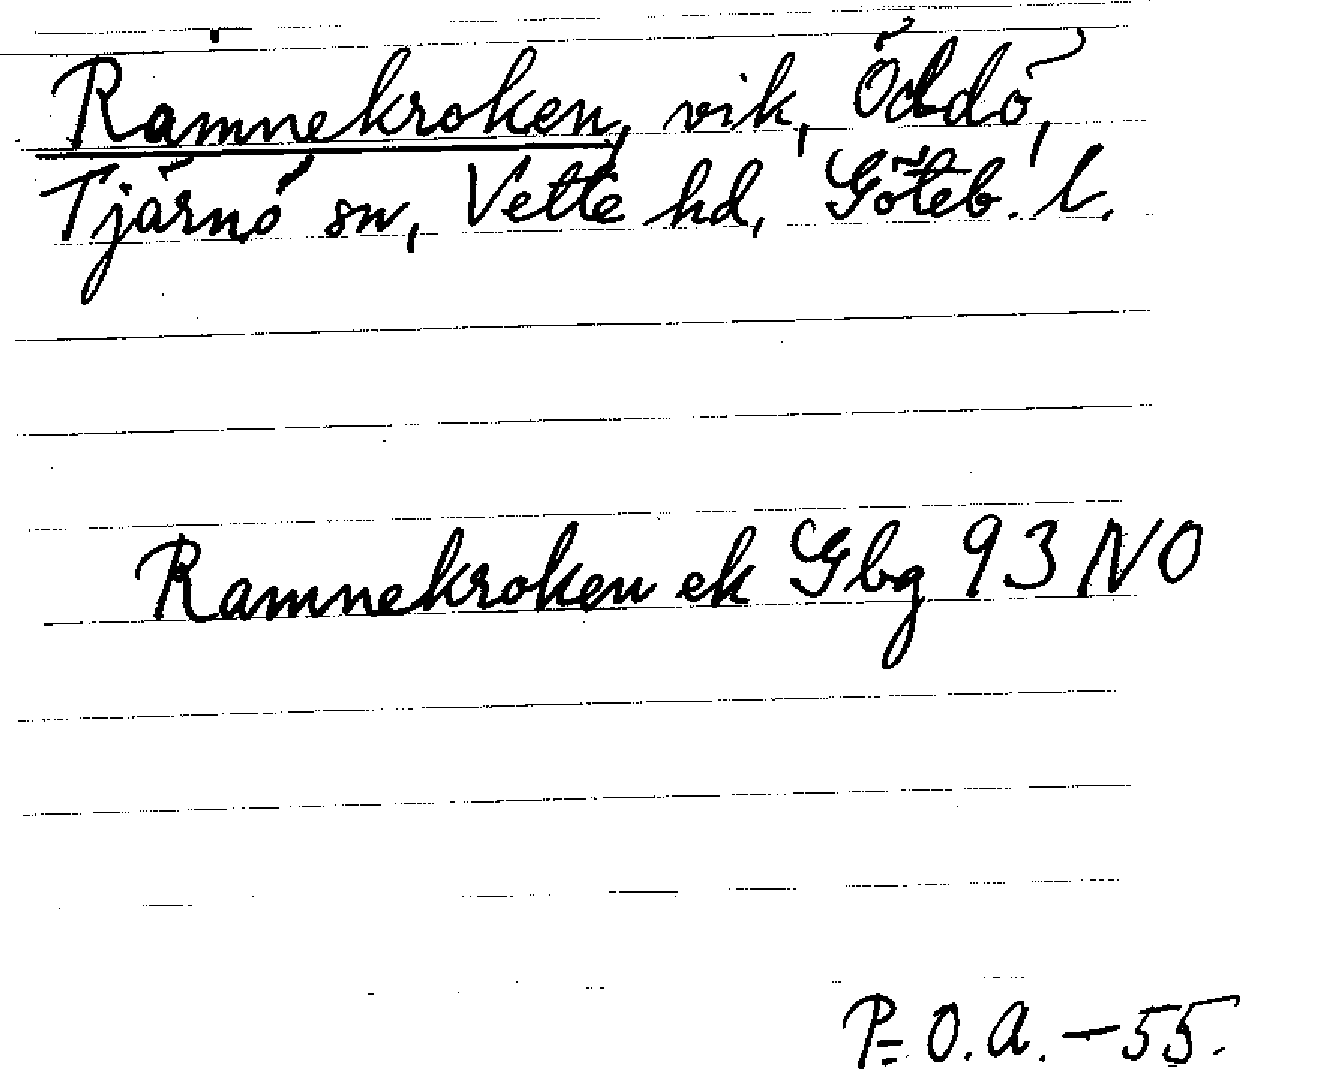 Ramnekroken, vik, Öddö,
Tjärnö sn, Vette hd, Göteb. l.
Ramnekroken ek Gbg 93 NO
P. O. A. – 55.